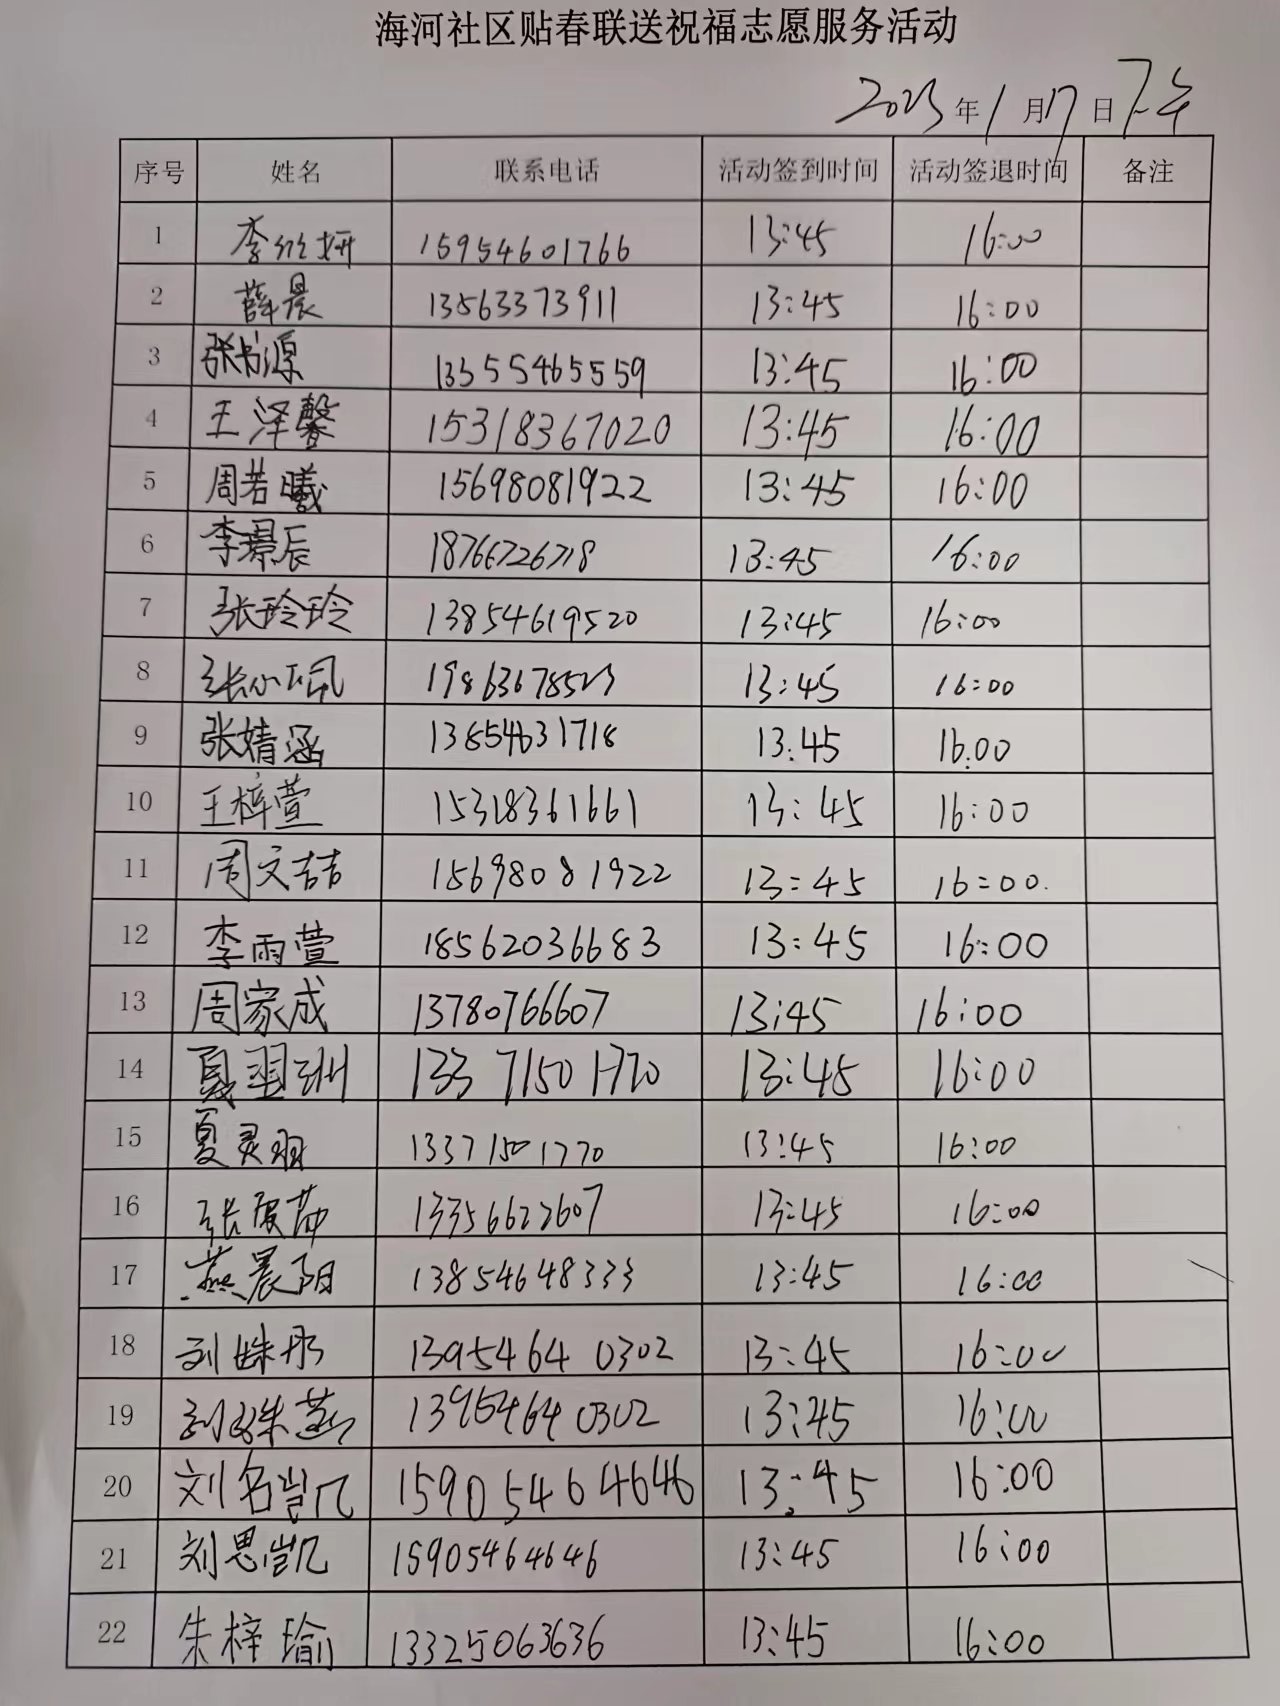 海河社区贴春联送祝福志愿服务活动
2023年1月17日下午
序号 姓名 联系电话 活动签到时间 活动签退时间 备注
1 李欣妍 15954601766 13:45 16:00
2 薛晨 13563373911 13:45 16:00
3 张书源 13355465559 13:45 16:00
4 王泽馨 15318367020 13:45 16:00
5 周若曦 15698081922 13:45 16:00
6 李璟辰 18766726718 13:45 16:00
7 张玲玲 13854619520 13:45 16:00
8 张 19863678523 13:45 16:00
9 张婧涵 13854631718 13:45 16:00
10 王梓萱 15318361661 13:45 16:00
11 周文喆 15698081922 13:45 16:00
12 李雨萱 18562036683 13:45 16:00
13 周家成 13780766607 13:45 16:00
14 夏羽洲 13371501770 13:45 16:00
15 夏灵羽 13371501770 13:45 16:00
16 张 13356622607 13:45 16:00
17 燕晨阳 13854648333 13:45 16:00
18 刘姝彤 13954640302 13:45 16:00
19 刘姝燕 13954640302 13:45 16:00
20 刘名凯 15905464646 13:45 16:00
21 刘思凯 15905464646 13:45 16:00
22 朱梓瑜 13325063636 13:45 16:00